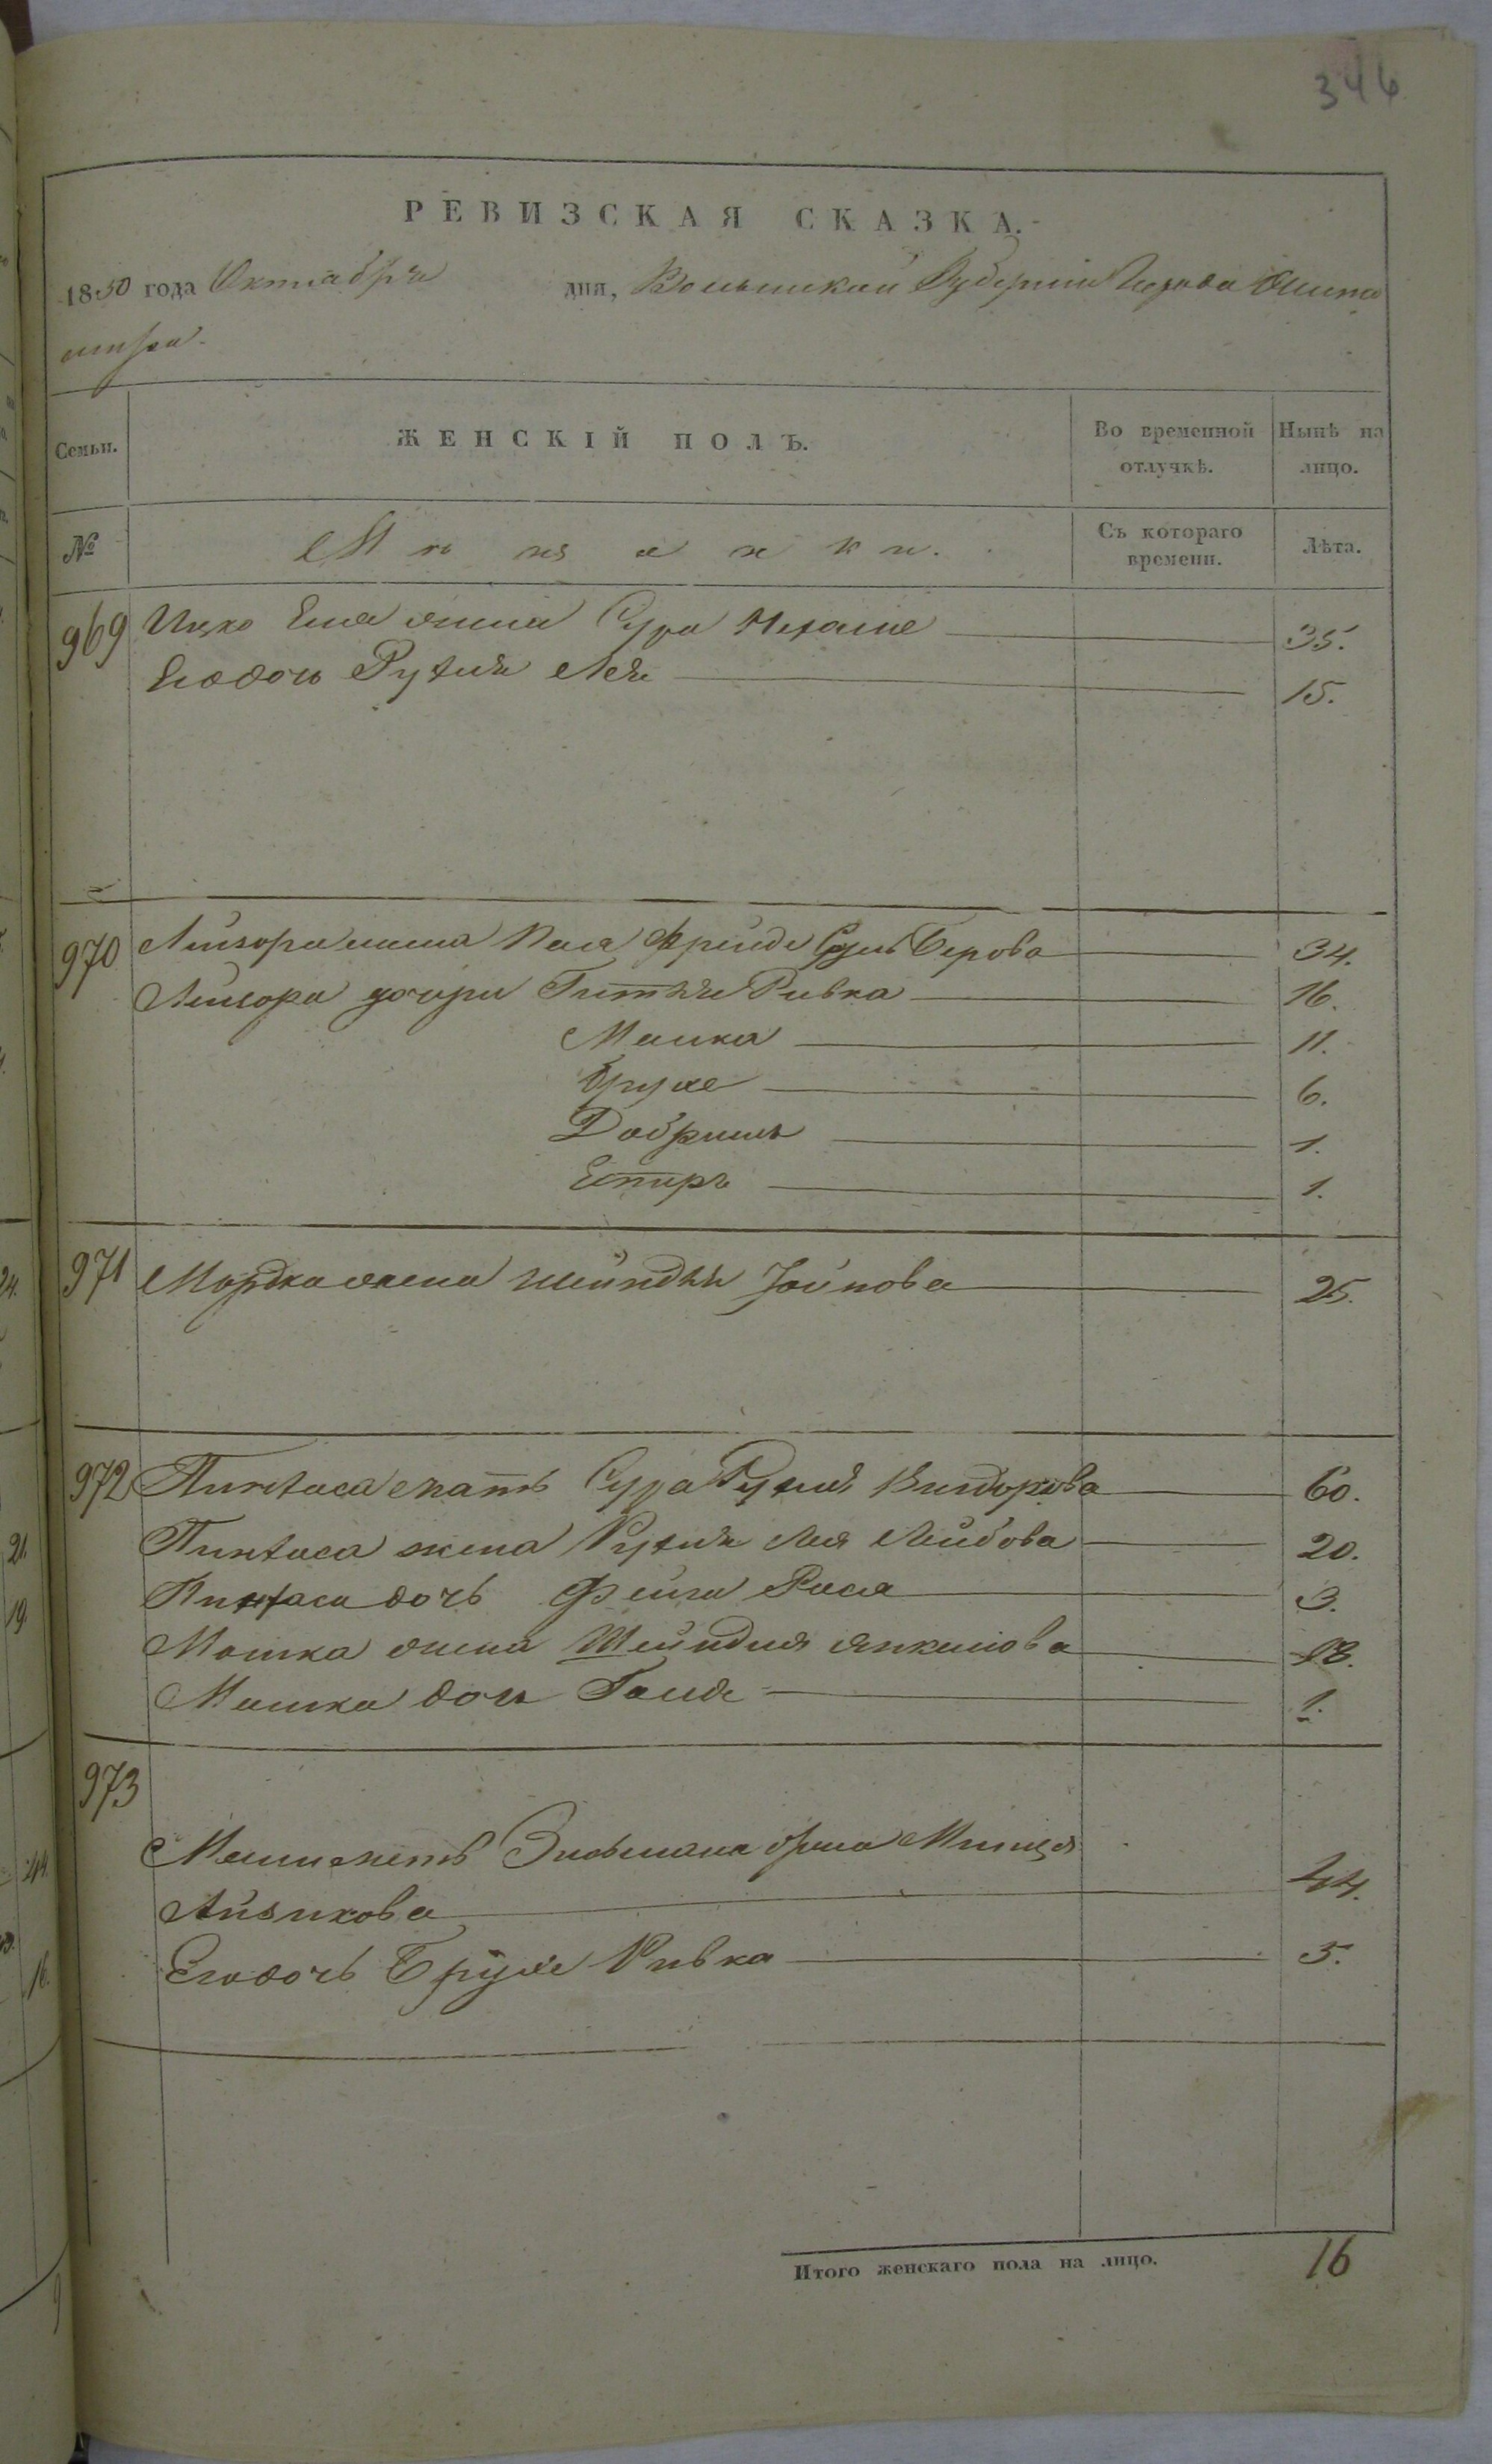 346
РЕВИЗСКАЯ СКАЗКА.
1850 года Октября дня, Волынской Губернии Города Житомира
Семьи.
ЖЕНСКІЙ ПОЛЪ.
Во временной отлучкѣ.
Нынѣ на лицо.
№
Мѣщанки.
Съ котораго времени.
Лѣта.
969 Ицко жена Сура 35.
Его дочь Рухля Лея 15.
970 Лейзора жена Фрейда Берова 34.
Лейзора дочери Гитля Ривка 16.
Машка 11.
Брухе 6.
Добришъ 1.
Естиръ 1.
971 Мордка жена Шейндля 25.
972 Пинхаса мать Сура Рухля 60.
Пинхаса жена Рухля Лея Лейбова 20.
Пинхаса дочь Фейга Рася 3.
Мошка жена Шейндля Янкелова 18.
Мошка дочь 1.
973
Айзикова 44.
Его дочь Брухе Ривка 5.
Итого женскаго пола на лицо. 16